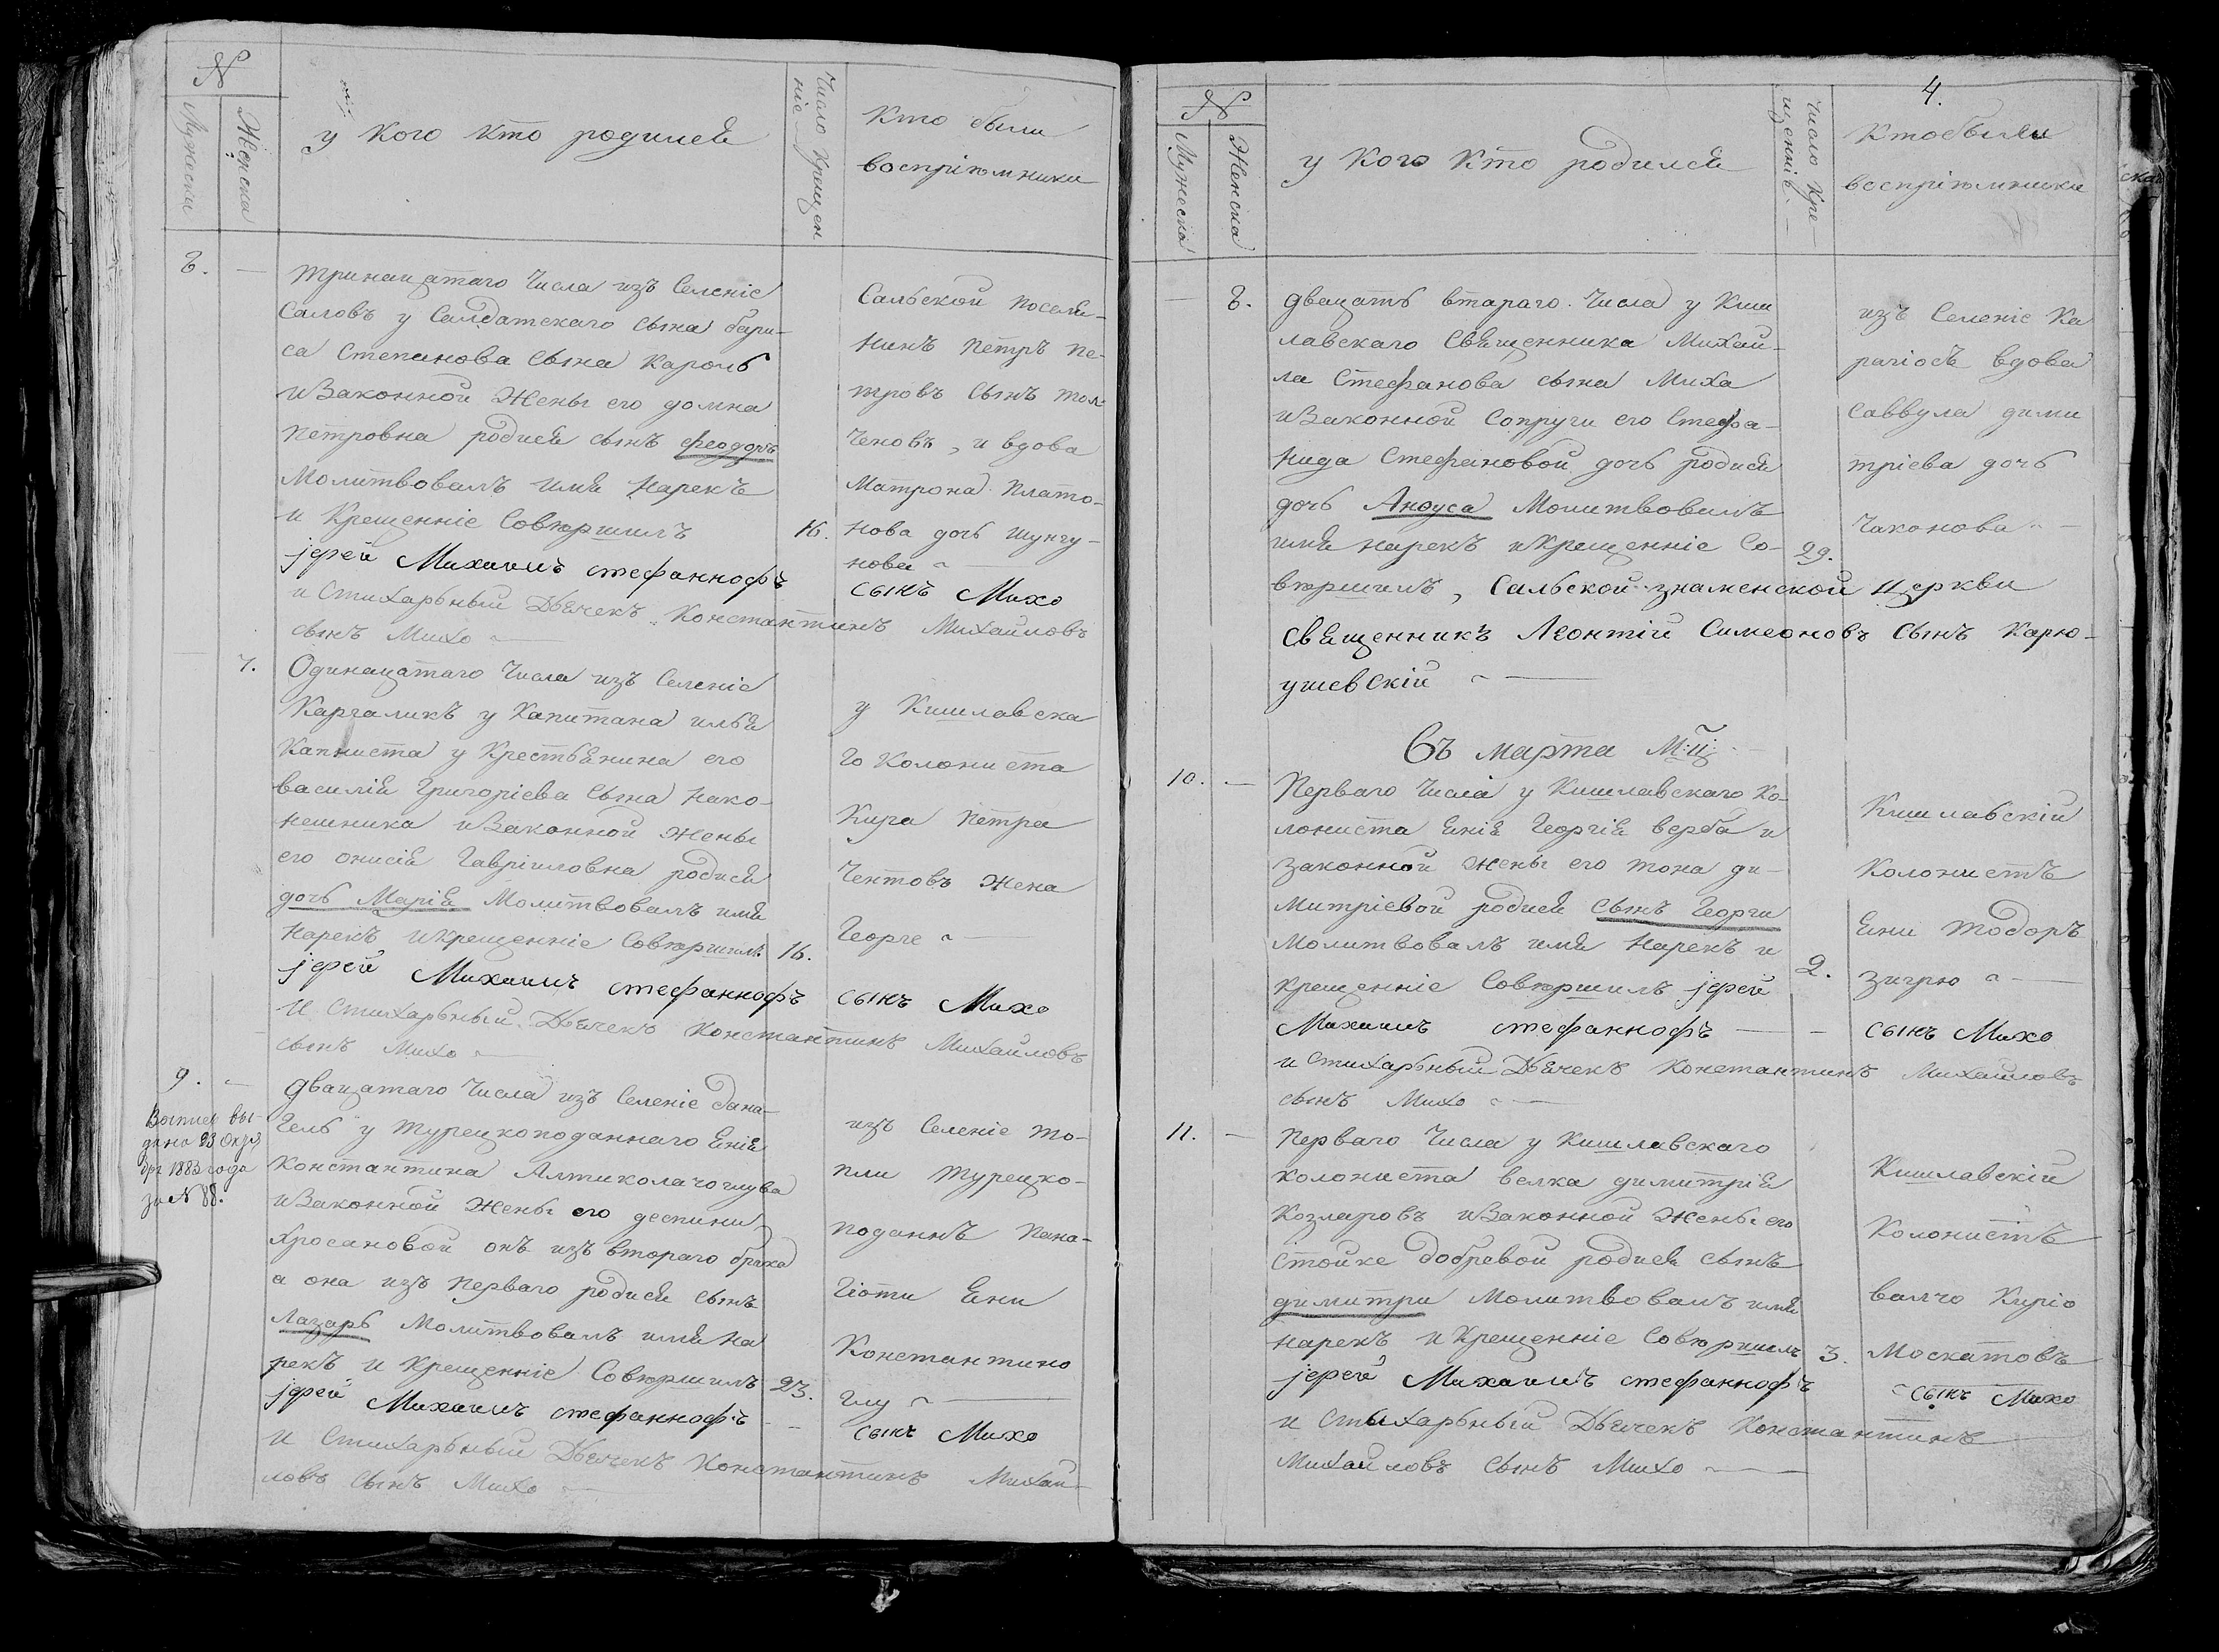 N
Мужеска
Женска
у кого кто родилсѧ
Число Крещен
ніе
Кто были
воспріюмники
8.
тринацатаго Числа изъ Селеніе
Саловъ у Салдатскаго сына бари-
са Степанова сына Кароль
и Законной Жены его домна
Петровна родисѧ сынъ феодоръ
Молитвовалъ имѧ Нарекъ
и Крещенніе Совюршилъ
16.
іерей Михаилъ стефаннофъ
сынъ Михо
и Стихарьный Дьѧчекъ Константинъ Михайловъ
сынъ Михо
Сальской посели-
нинъ Петръ Пе-
тровъ Сынъ Тол
Ченовъ, и вдова
Матрона Плато-
нова дочь Шунгу-
нова
7.
Одинацатаго Числа изъ Селеніе
Каргаликъ у Капитана ильѧ
Капниста у Крестьѧнина его
василіѧ Григоріева Сына Нако-
нешника и Законной Жены
его онисіѧ Гавріиловна родисѧ
дочь Маріѧ Молитвовалъ имѧ
Нарекъ и Крещенніе Совюршилъ
16.
іерей Михаилъ стефаннофъ
сынъ Михо
и Стихарьный Дьѧчекъ Константинъ Михайловъ
сынъ Михо
у Кишлавска
го Колониста
Кира Петра
Чентовъ Жена
Георге
9.
Выпись вы-
дана 23 Октѧ
брѧ 1883 года
за N 88.
Двацатаго Числа изъ Селеніе бана-
Гель у Турецкоподаннаго Ѧніѧ
Константина Алтиколачоглува
и Законной Жены его деспини
Хросановой онъ изъ втораго брака
а она изъ перваго родисѧ сынъ
Лазарь Молитвовалъ имѧ На
рекъ и Крещенніе Совюршилъ
23.
іерей Михаилъ стефаннофъ
сынъ Михо
и Стихарьный Дьѧчекъ Константинъ Михай-
ловъ сынъ Михо
изъ Селеніе То-
пли Турецко-
поданнъ Пана-
гіоти Ѧни
Константино
глу
4.
N
Мужеска
Женска
у Кого Кто родилсѧ
Число Кре-
щенніѧ
Кто были
воспріюмники
8.
двацать втараго Числа у Киш
лавскаго Свѧщенника Михаи-
ла Стефанова сына Миха
и Законной Сопруги его Стефа-
нида Стефановой дочь родисѧ
дочь Анауса Молитвовалъ
имѧ нарекъ и Крещенніе Со-
29.
вюршилъ, Сальской знаменской Церкви
свѧщенникъ Леонтій Симеоновъ сынъ Карю-
ушевскій
изъ Селеніе Ка
рагіосъ вдова
Саввула дими
тріева дочь
Чаконова
Съ марта М:ц
10.
Перваго Числа у Кишлавскаго Ко-
лониста Ѧніѧ Георгіѧ верба и
законной жены его тона ди-
митріевой родисѧ Сынъ Георги
Молитвовалъ имѧ Нарекъ и
крещенніе Совюршилъ іерей
2.
Михаилъ стефаннофъ
сынъ Михо
и Стихарьный Дьѧчекъ Константинъ Михайловъ
сынъ Михо
Кишлавскій
Колонистъ
Ѧни Тодоръ
згурю
11.
Перваго Числа у Кишлавскаго
Колониста велка димитріѧ
Козларовъ и Законной Жены его
Стойке Добревой родисѧ сынъ
димитри Молитвовалъ имѧ
нарекъ и Крещенніе Совюршилъ
3.
іерей Михаилъ стефаннофъ
сынъ Михо
и Стыхарьный Дьѧчекъ Константинъ
Михайловъ сынъ Михо
Кишлавскій
Колонистъ
валчо Киріо
Москатовъ